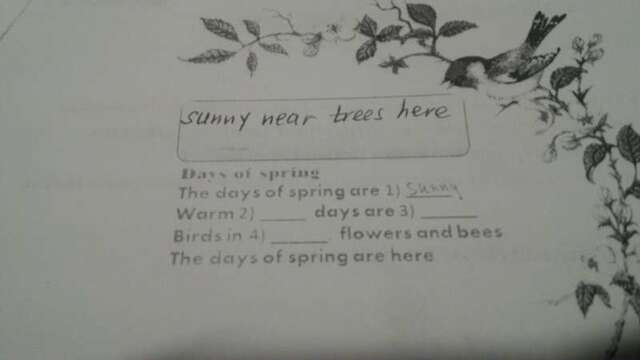 sunny near trees here
Days of spring
The days of spring are 1) Sunny
Warm 2) ____ days are 3) ____
Birds in 4) ____ flowers and bees
The days of spring are here